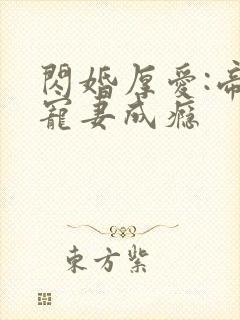 閃婚厚愛:帝
寵妻成瘾
東方紫